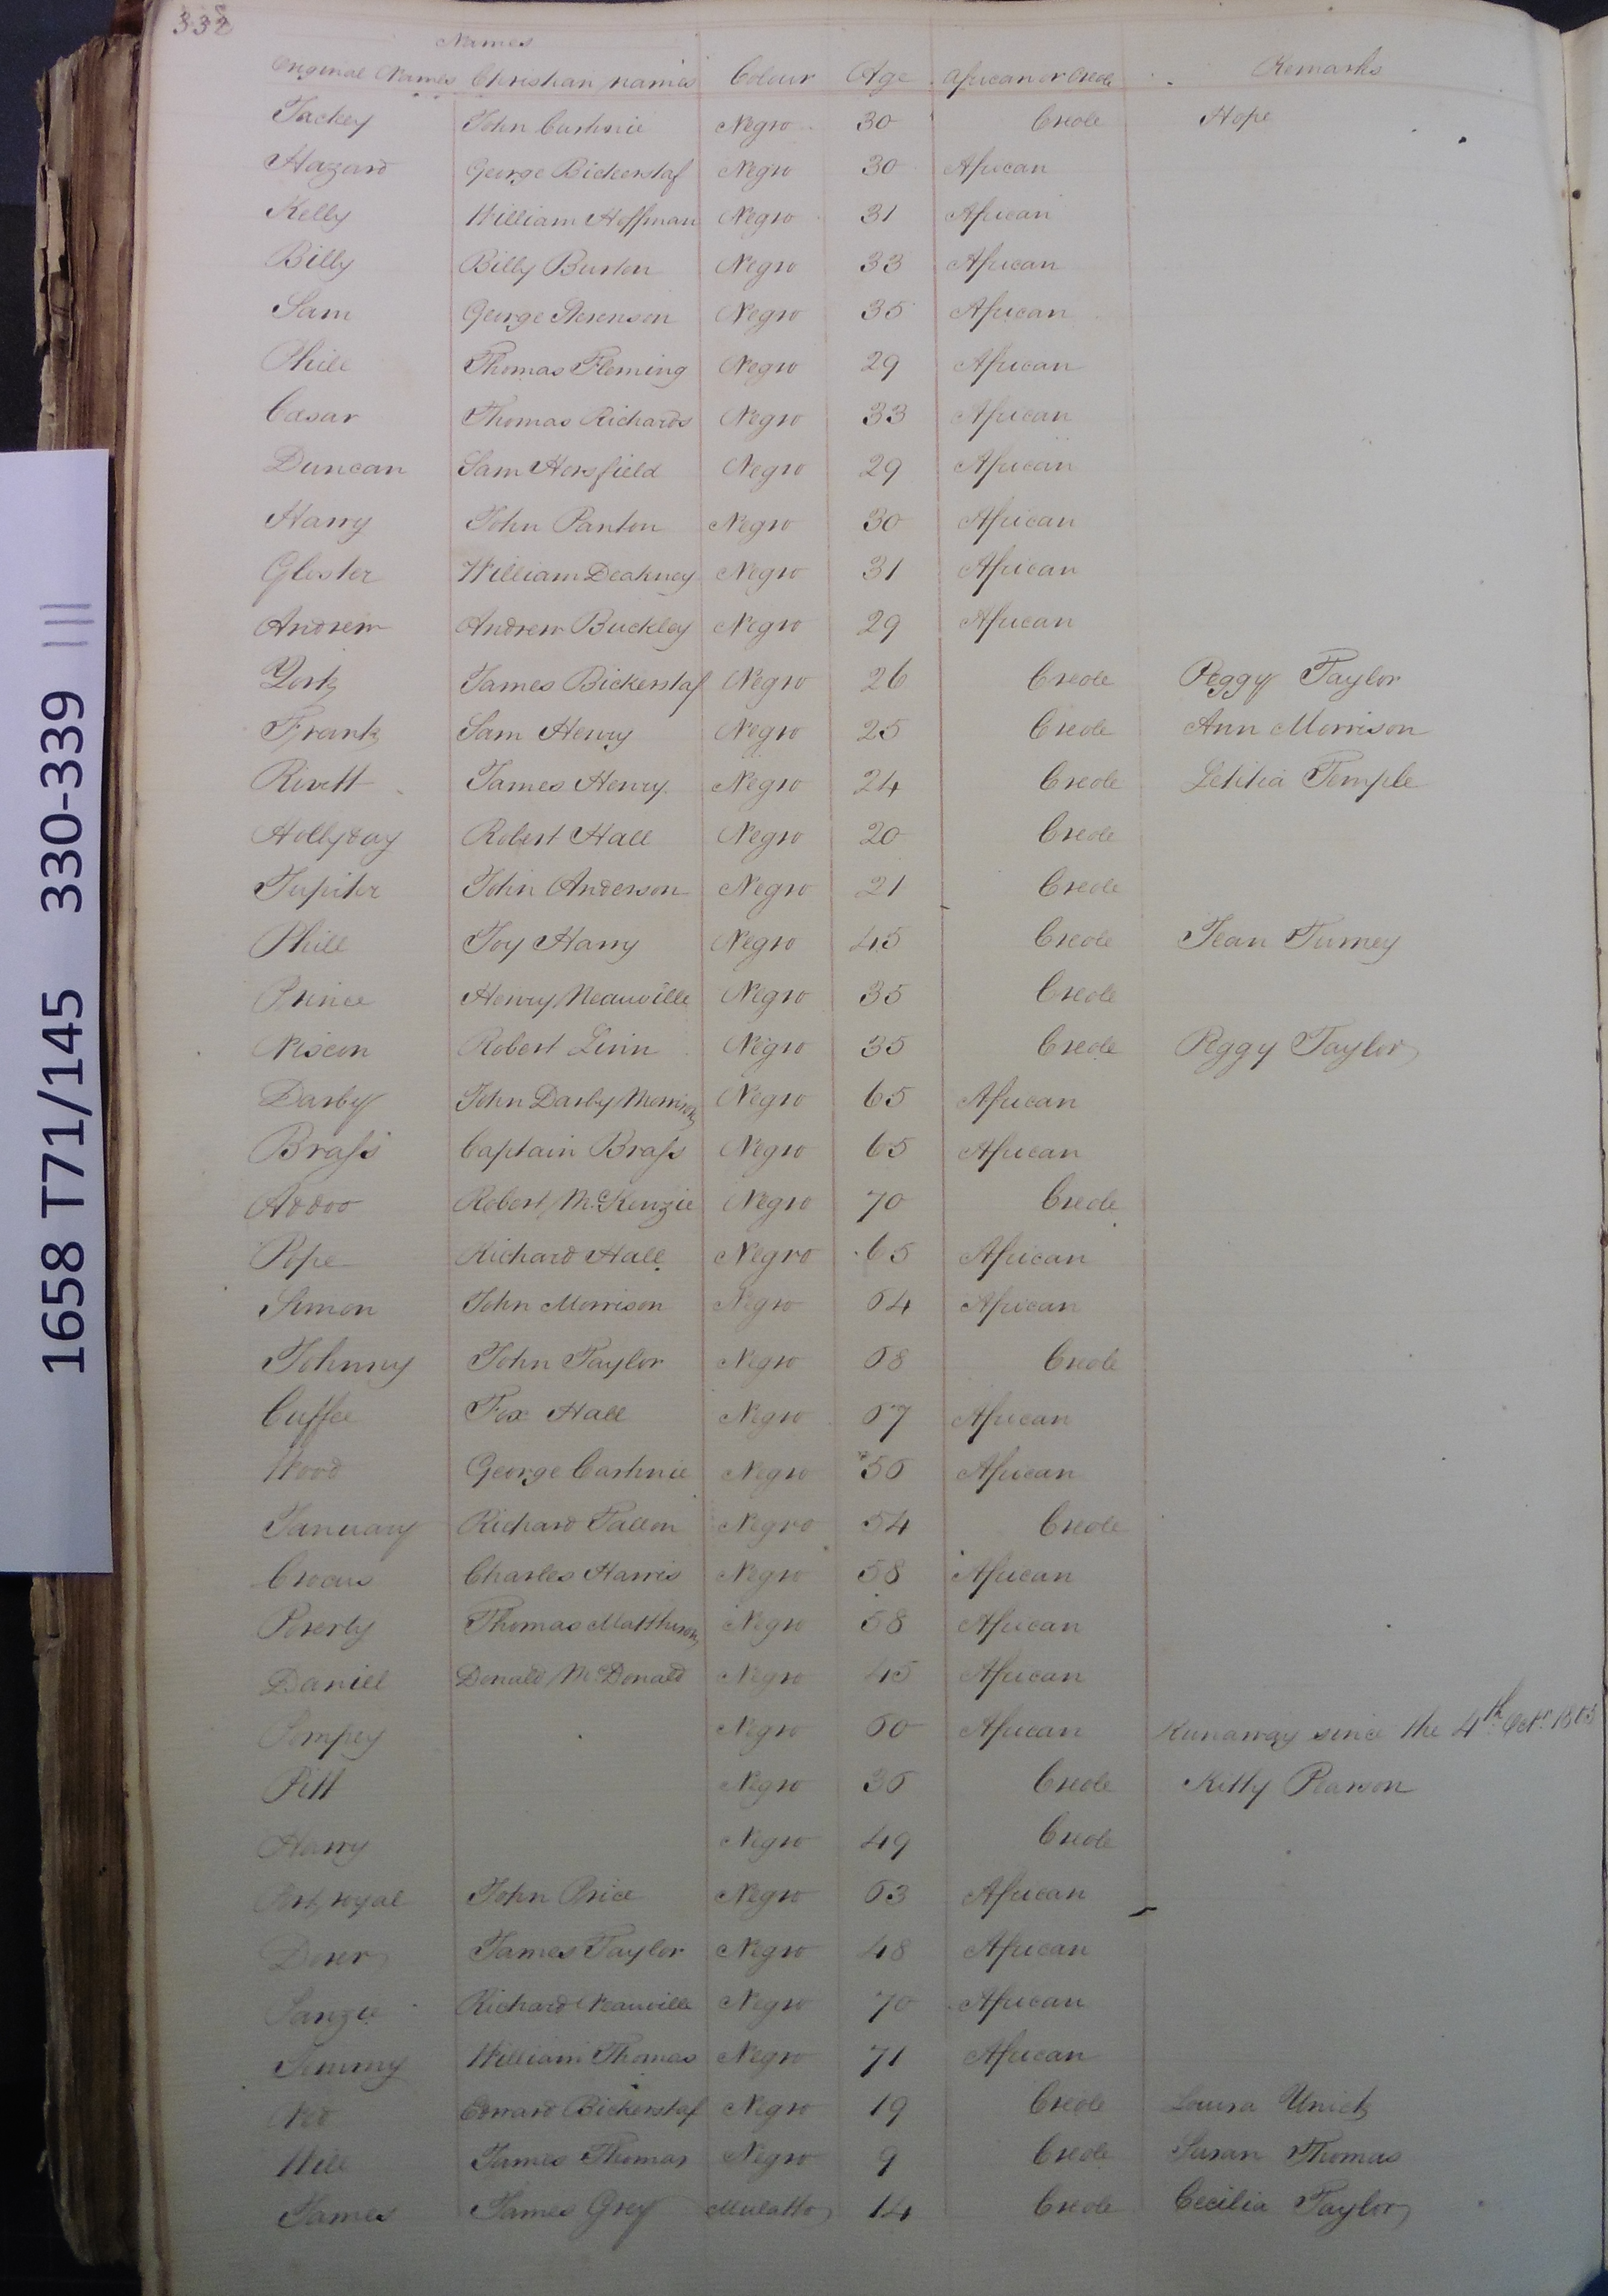 332
Names
Original Names Christian names Colour Age African or Creole Remarks
Jackey John Cushnie Negro 30 Creole Hope
Hazard George Bickerstaf Negro 30 African
Kelly William Hoffman Negro 31 African
Billy Billy Burton Negro 33 African
Sam George Stevenson Negro 35 African
Phill Thomas Fleming Negro 29 African
Cæsar Thomas Richards Negro 33 African
Duncan Sam Horsfield Negro 29 African
Harry John Panton Negro 30 African
Gloster William Deakney Negro 31 African
Andrew Andrew Buckley Negro 29 African
York James Bickerstaf Negro 26 Creole Peggy Taylor
Frank Sam Henry Negro 25 Creole Ann Morrison
Rivett James Henry Negro 24 Creole Letitia Temple
Hollyday Robert Hall Negro 20 Creole
Jupiter John Anderson Negro 21 Creole
Phill Joy Harry Negro 45 Creole Jean Turney
Prince Henry Neauville Negro 35 Creole
Robert Linn Negro 35 Creole Peggy Taylor
Darby John Darby Morrison Negro 65 African
Brass Captain Brass Negro 65 African
Addoo Robert McKenzie Negro 70 Creole
Pope Richard Hall Negro 65 African
Simon John Morrison Negro 54 African
Johnny John Taylor Negro 58 Creole
Cuffee Fox Hall Negro 57 African
Wood George Cushnie Negro 55 African
January Richard Fallon Negro 54 Creole
Crocus Charles Harris Negro 58 African
Poverty Thomas Matthison Negro 58 African
Daniell Donald McDonald Negro 45 African
Pompey Negro 50 African Runaway since the 4th Octr
Pitt Negro 35 Creole Kitty Pearson
Harry Negro 49 Creole
Port royal John Price Negro 53 African
Dover James Taylor Negro 48 African
Richard Neauville Negro 70 African
Jemmy William Thomas Negro 71 African
Ned Edward Bickerstaf Negro 19 Creole Louisa Unick
Will James Thomas Negro 9 Creole Susan Thomas
James James Grey Mulatto 14 Creole Cecilia Taylor
1658 T71/145 330-339